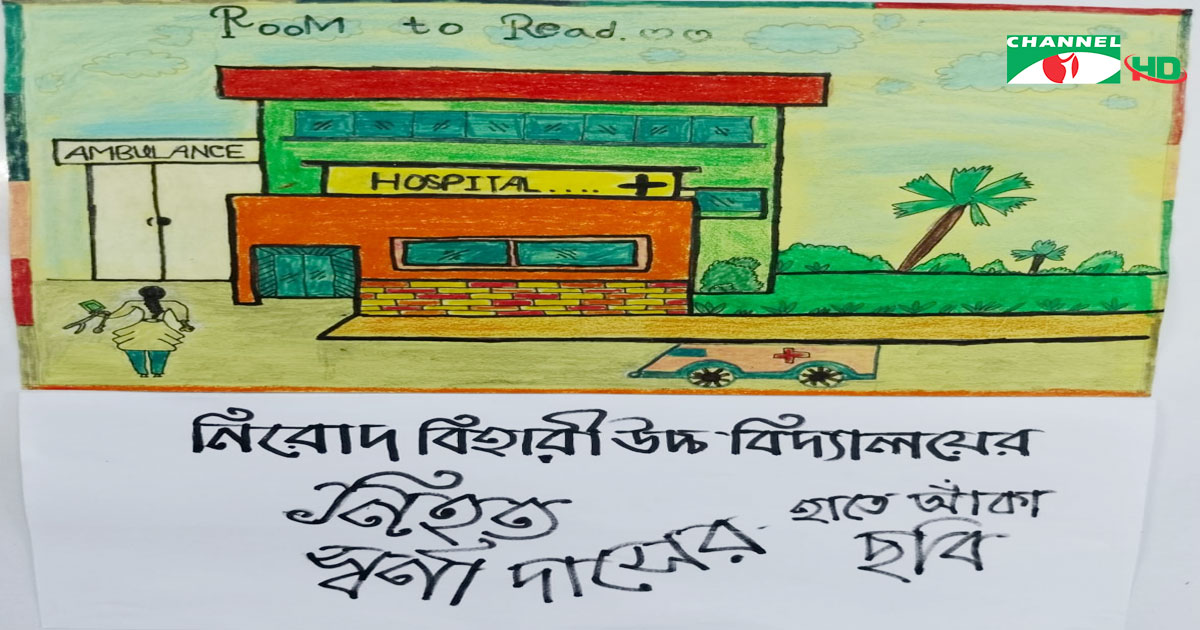 Room to Read. ෆෆ
CHANNEL
i HD
AMBULANCE
HOSPITAL.....
নিরোদ বিহারী উচ্চ বিদ্যালয়ের
নিহত হাতে আঁকা
স্বর্ণা দাসের ছবি